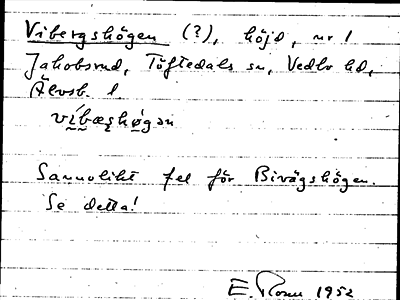 Vibergshögen (?), höjd, nr 1
Jakobsrud, Töftedals sn, Vedbo hd,
Älvsb. l.
víbæshǿgən
Sannolikt fel för Bivägshögen.
Se detta!
E. Rosen 1952